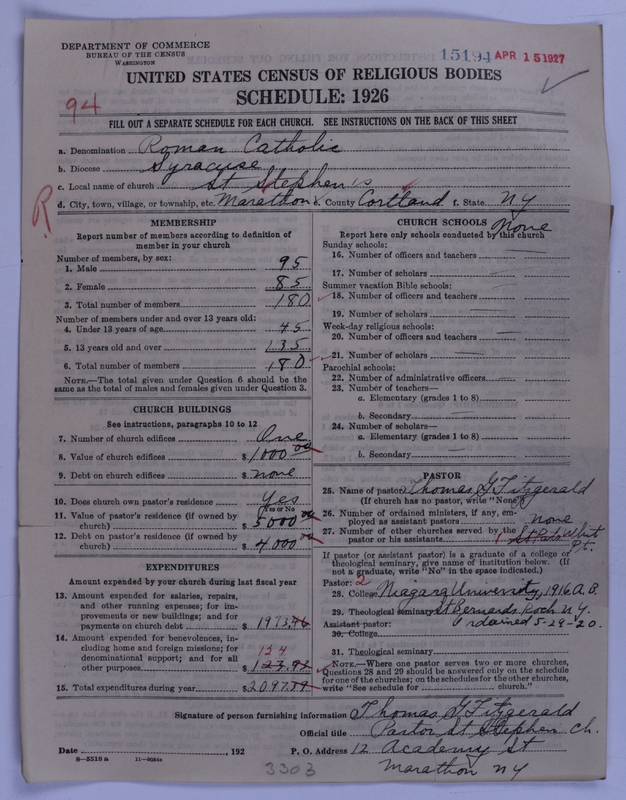 DEPARTMENT OF COMMERCE
BUREAU OF THE CENSUS
WASHINGTON
15194 APR 15 1927
UNITED STATES CENSUS OF RELIGIOUS BODIES
SCHEDULE: 1926
94
FILL OUT A SEPARATE SCHEDULE FOR EACH CHURCH. SEE INSTRUCTIONS ON THE BACK OF THIS SHEET
a. Denomination Roman Catholic
b. Diocese Syracuse
c. Local name of church St Stephen's
d. City, town, village, or township, etc. Marathon e. County Cortland f. State NY
R
MEMBERSHIP
Report number of members according to definition of
member in your church
Number of members, by sex:
1. Male 95
2. Female 85
3. Total number of members 180
Number of members under and over 13 years old:
4. Under 13 years of age 45
5. 13 years old and over 135
6. Total number of members 180
NOTE.—The total given under Question 6 should be
the same as the total of males and females given under Question 3.
CHURCH BUILDINGS
See instructions, paragraphs 10 to 12
7. Number of church edifices One
8. Value of church edifices $ 1000 00
9. Debt on church edifices $ none
10. Does church own pastor's residence Yes
Yes or No
11. Value of pastor's residence (if owned by
church) $ 5000 00
12. Debt on pastor's residence (if owned by
church) $ 4000 00
EXPENDITURES
Amount expended by your church during last fiscal year
13. Amount expended for salaries, repairs,
and other running expenses; for im-
provements or new buildings; and for
payments on church debt $ 1973.46
14. Amount expended for benevolences, in-
cluding home and foreign missions; for
denominational support; and for all
124
other purposes $ 123.92
15. Total expenditures during year $ 2097.39
CHURCH SCHOOLS None
Report here only schools conducted by this church
Sunday schools:
16. Number of officers and teachers
17. Number of scholars
Summer vacation Bible schools:
18. Number of officers and teachers
19. Number of scholars
Week-day religious schools:
20. Number of officers and teachers
21. Number of scholars
Parochial schools:
22. Number of administrative officers
23. Number of teachers—
a. Elementary (grades 1 to 8)
b. Secondary
24. Number of scholars—
a. Elementary (grades 1 to 8)
b. Secondary
PASTOR
25. Name of pastor Thomas G Fitzgerald
(If church has no pastor, write "None")
26. Number of ordained ministers, if any, em-
ployed as assistant pastors none
27. Number of other churches served by the
pastor or his assistants 1 St Pats Whit
Pt.
If pastor (or assistant pastor) is a graduate of a college or
theological seminary, give name of institution below. (If
not a graduate, write "No" in the space indicated.)
Pastor: 2
28. College Niagara University, 1916 A.B.
29. Theological seminary St Bernards, Roch N.Y.
Assistant pastor: Ordained 5-29-20.
30. College
31. Theological seminary
NOTE.—Where one pastor serves two or more churches,
Questions 28 and 29 should be answered only on the schedule
for one of the churches; on the schedules for the other churches,
write "See schedule for church."
Signature of person furnishing information Thomas G Fitzgerald
Official title Pastor St Stephen Ch.
Date , 192 P. O. Address 12 Academy St
8—5518 a 11—9054a
Marathon NY
3303